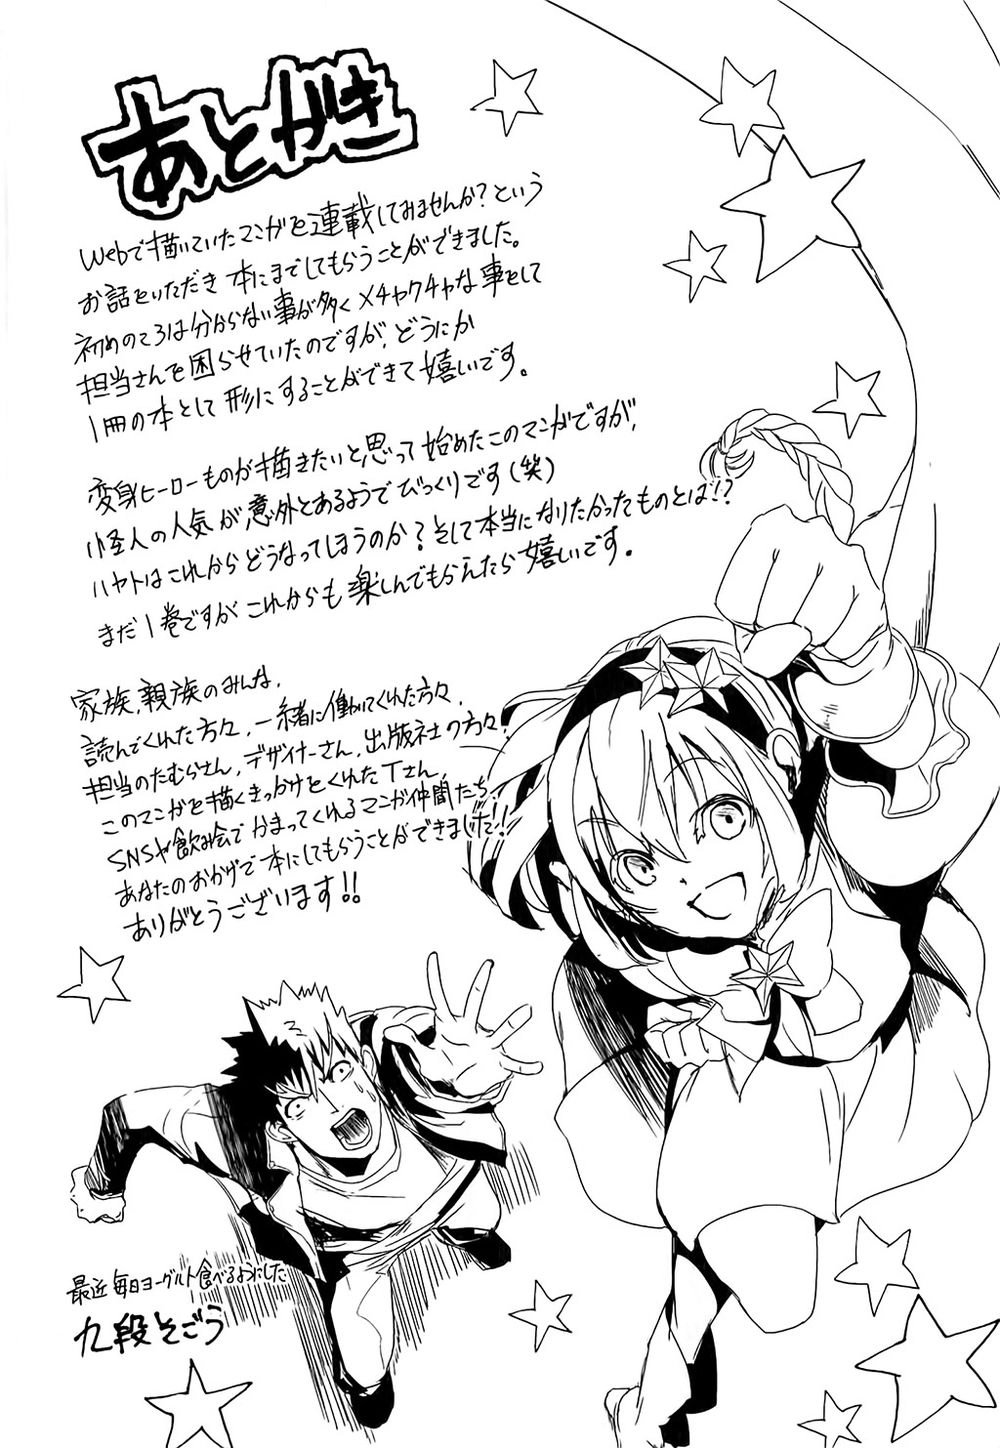 あとがき
Webで描いていたマンガを連載してみませんか?という
お話をいただき 本にまでしてもらうことができました。
初めのころは分からない事が多くメチャクチャな事をして
担当さんを困らせていたのですが、どうにか
1冊の本として形にすることができて嬉しいです。
変身ヒーローものが描きたいと思って始めたこのマンガですが、
怪人の人気が意外とあるようでびっくりです(笑)
ハヤトはこれからどうなってしまうのか?そして本当になりたかったものとは!?
まだ1巻ですがこれからも楽しんでもらえたら嬉しいです。
家族、親族のみんな、
読んでくれた方々、一緒に働いてくれた方々、
担当のたむらさん、デザイナーさん、出版社の方々、
このマンガを描くきっかけをくれたTさん、
SNSや飲み会でかまってくれるマンガ仲間たち、
あなたのおかげで本にしてもらうことができました!!
ありがとうございます!!
最近毎日ヨーグルト食べるようにした
九段そごう